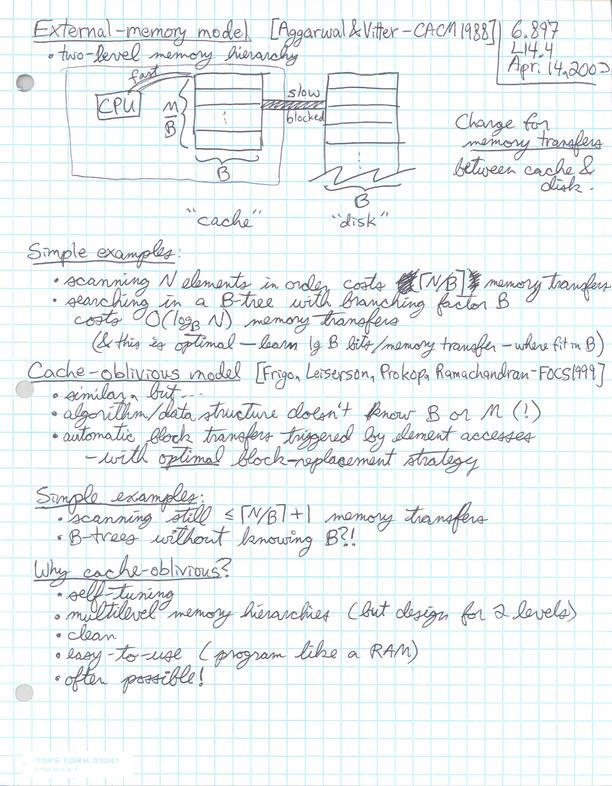 External-memory model [Aggarwal & Vitter - CACM 1988]
6.897
L14.4
Apr. 14, 2003
• two-level memory hierarchy
fast
CPU
M
B
slow
blocked
B
B
"cache"
"disk"
Charge for
memory transfers
between cache &
disk.
Simple examples:
• scanning N elements in order costs ⌈N/B⌉ memory transfers
• searching in a B-tree with branching factor B
costs O(log_B N) memory transfers
(& this is optimal - learn lg B bits/memory transfer - where fit in B)
Cache-oblivious model [Frigo, Leiserson, Prokop, Ramachandran - FOCS 1999]
• similar, but...
• algorithm/data structure doesn't know B or M (!)
• automatic block transfers triggered by element accesses
- with optimal block-replacement strategy
Simple examples:
• scanning still ≤ ⌈N/B⌉ + 1 memory transfers
• B-trees without knowing B?!
Why cache-oblivious?
• self-tuning
• multilevel memory hierarchies (but design for 2 levels)
• clean
• easy-to-use (program like a RAM)
• often possible!
TOPS FORM 33061